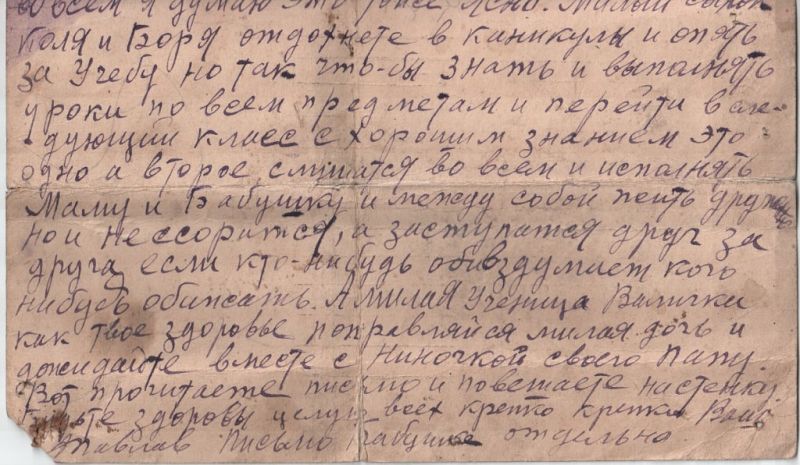 во всем я думаю это тоже ясно. Милый сынок
Коля и Боря отдохнете в каникулы и опять
за Учебу но так что-бы знать и выполнять
уроки по всем предметам и перейти в сле-
дующий класс с хорошим знанием это
одно а второе слушатся во всем и исполнять
Маму и Бабушку и между собой жить друж
но и нессорится, а заступатся друг за
друга если кто-нибудь обивздумает кого
нибудь обижать. А милая Ученица Валичка
как твое здоровье поправляйся милая дочь и
дожидайте вместе с Ниночкой своего папу.
Вот прочитаете письмо и повешаете настенку
здоровы целую всех крепко крепко Ваш
Письмо отдельно.